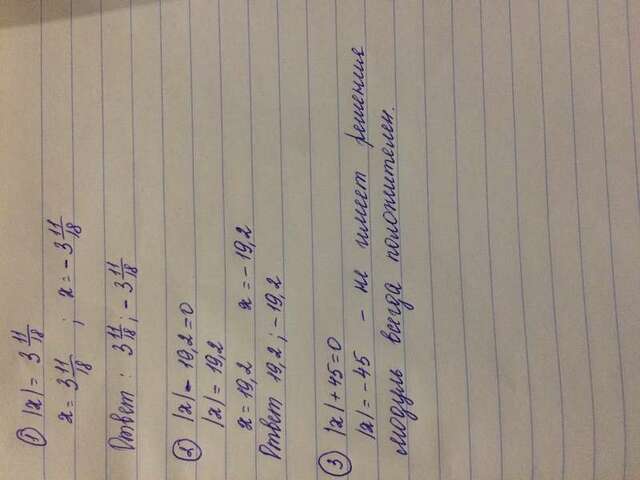 1) |x| = 3 11/18
x = 3 11/18 ; x = -3 11/18
Ответ : 3 11/18; -3 11/18
2) |x| - 19,2 = 0
|x| = 19,2
x = 19,2 x = -19,2
Ответ 19,2; -19,2
3) |x| + 45 = 0
|x| = -45 - не имеет решения
модуль всегда положителен.